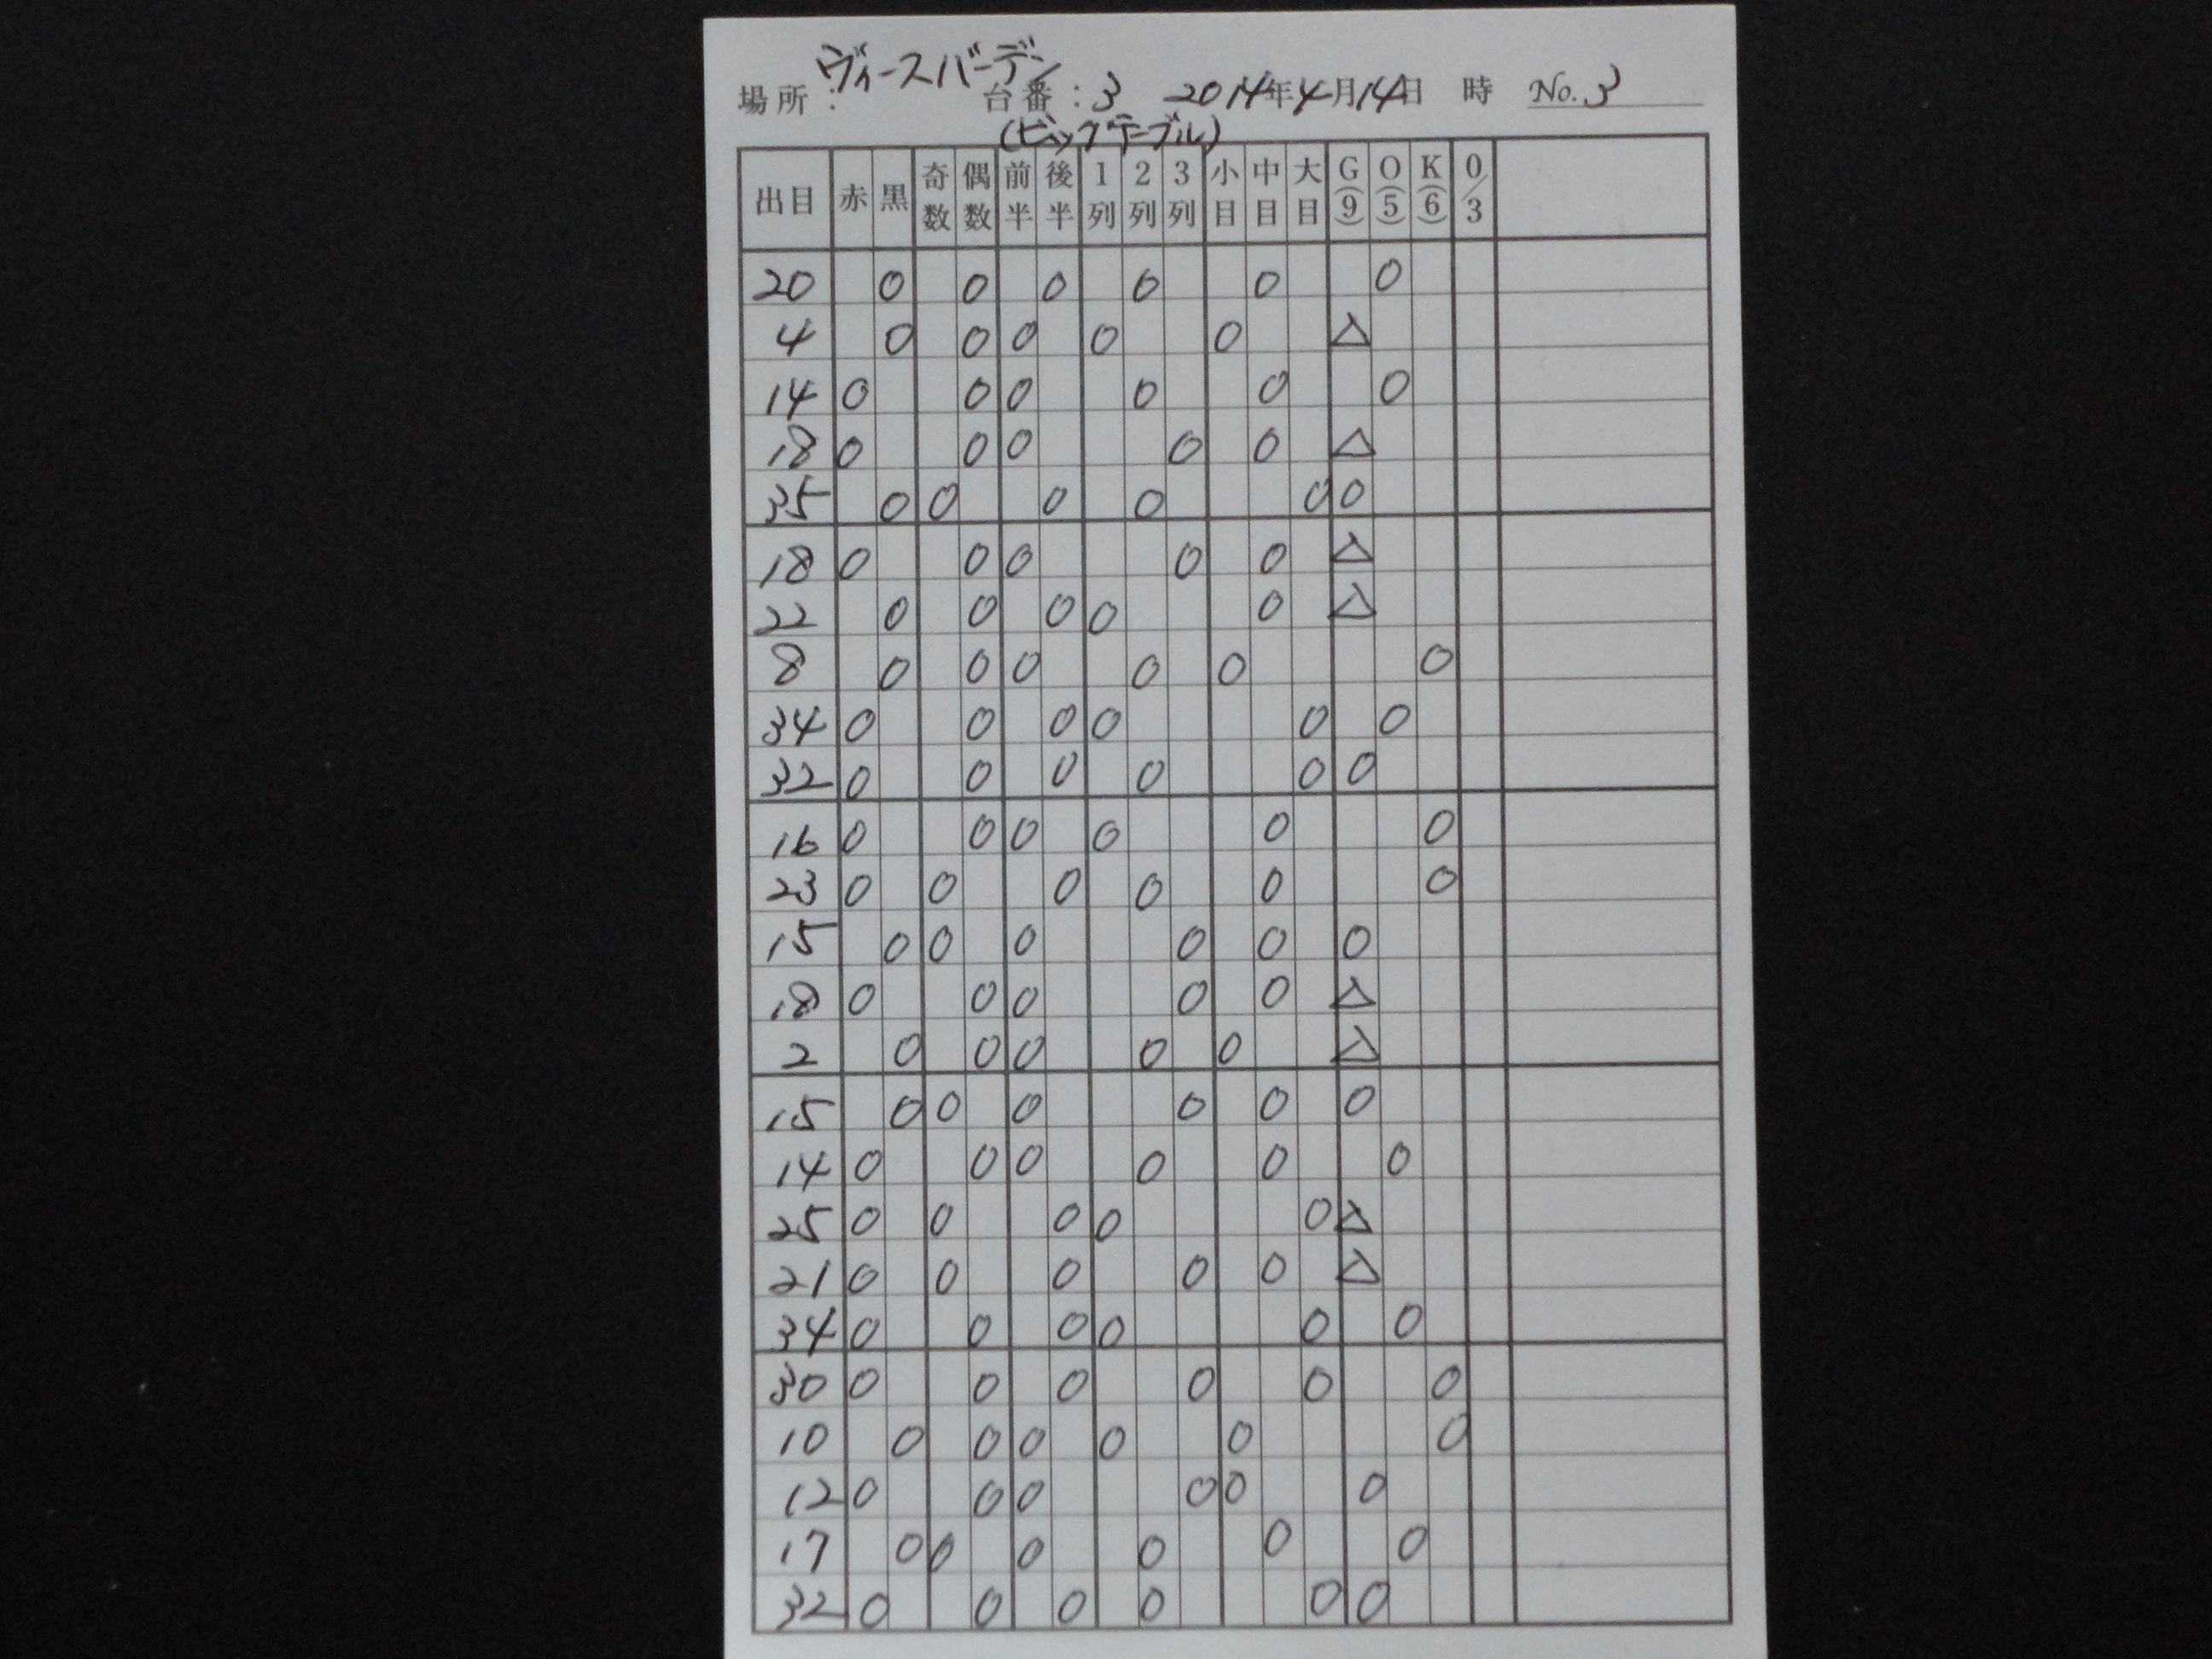 ヴィースバーデン
場所： 台番：3 2014年4月14日 時 No.3
(ビックテーブル)
出目 赤 黒 奇数 偶数 前半 後半 1列 2列 3列 小目 中目 大目 G(9) O(5) K(6) 0/3
20 0 0 0 0 0 0
4 0 0 0 0 0 △
14 0 0 0 0 0 0
18 0 0 0 0 0 △
35 0 0 0 0 0 0
18 0 0 0 0 0 △
22 0 0 0 0 0 △
8 0 0 0 0 0 0
34 0 0 0 0 0 0
32 0 0 0 0 0 0
16 0 0 0 0 0 0
23 0 0 0 0 0 0
15 0 0 0 0 0 0
18 0 0 0 0 0 △
2 0 0 0 0 0 △
15 0 0 0 0 0 0
14 0 0 0 0 0 0
25 0 0 0 0 0 △
21 0 0 0 0 0 △
34 0 0 0 0 0 0
30 0 0 0 0 0 0
10 0 0 0 0 0 0
12 0 0 0 0 0 0
17 0 0 0 0 0 0
32 0 0 0 0 0 0